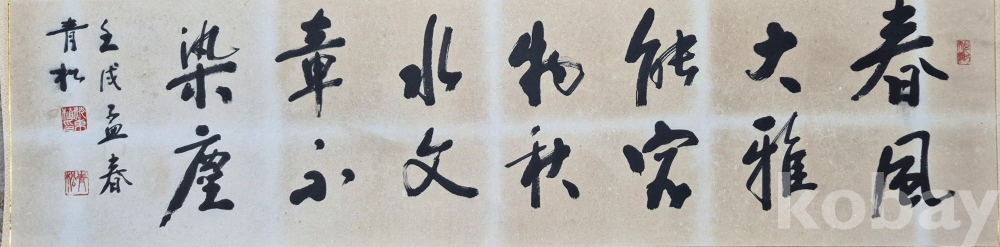 春風
大雅
能容
物秋
水文
章不
染塵
壬戌孟春
青松
kobay